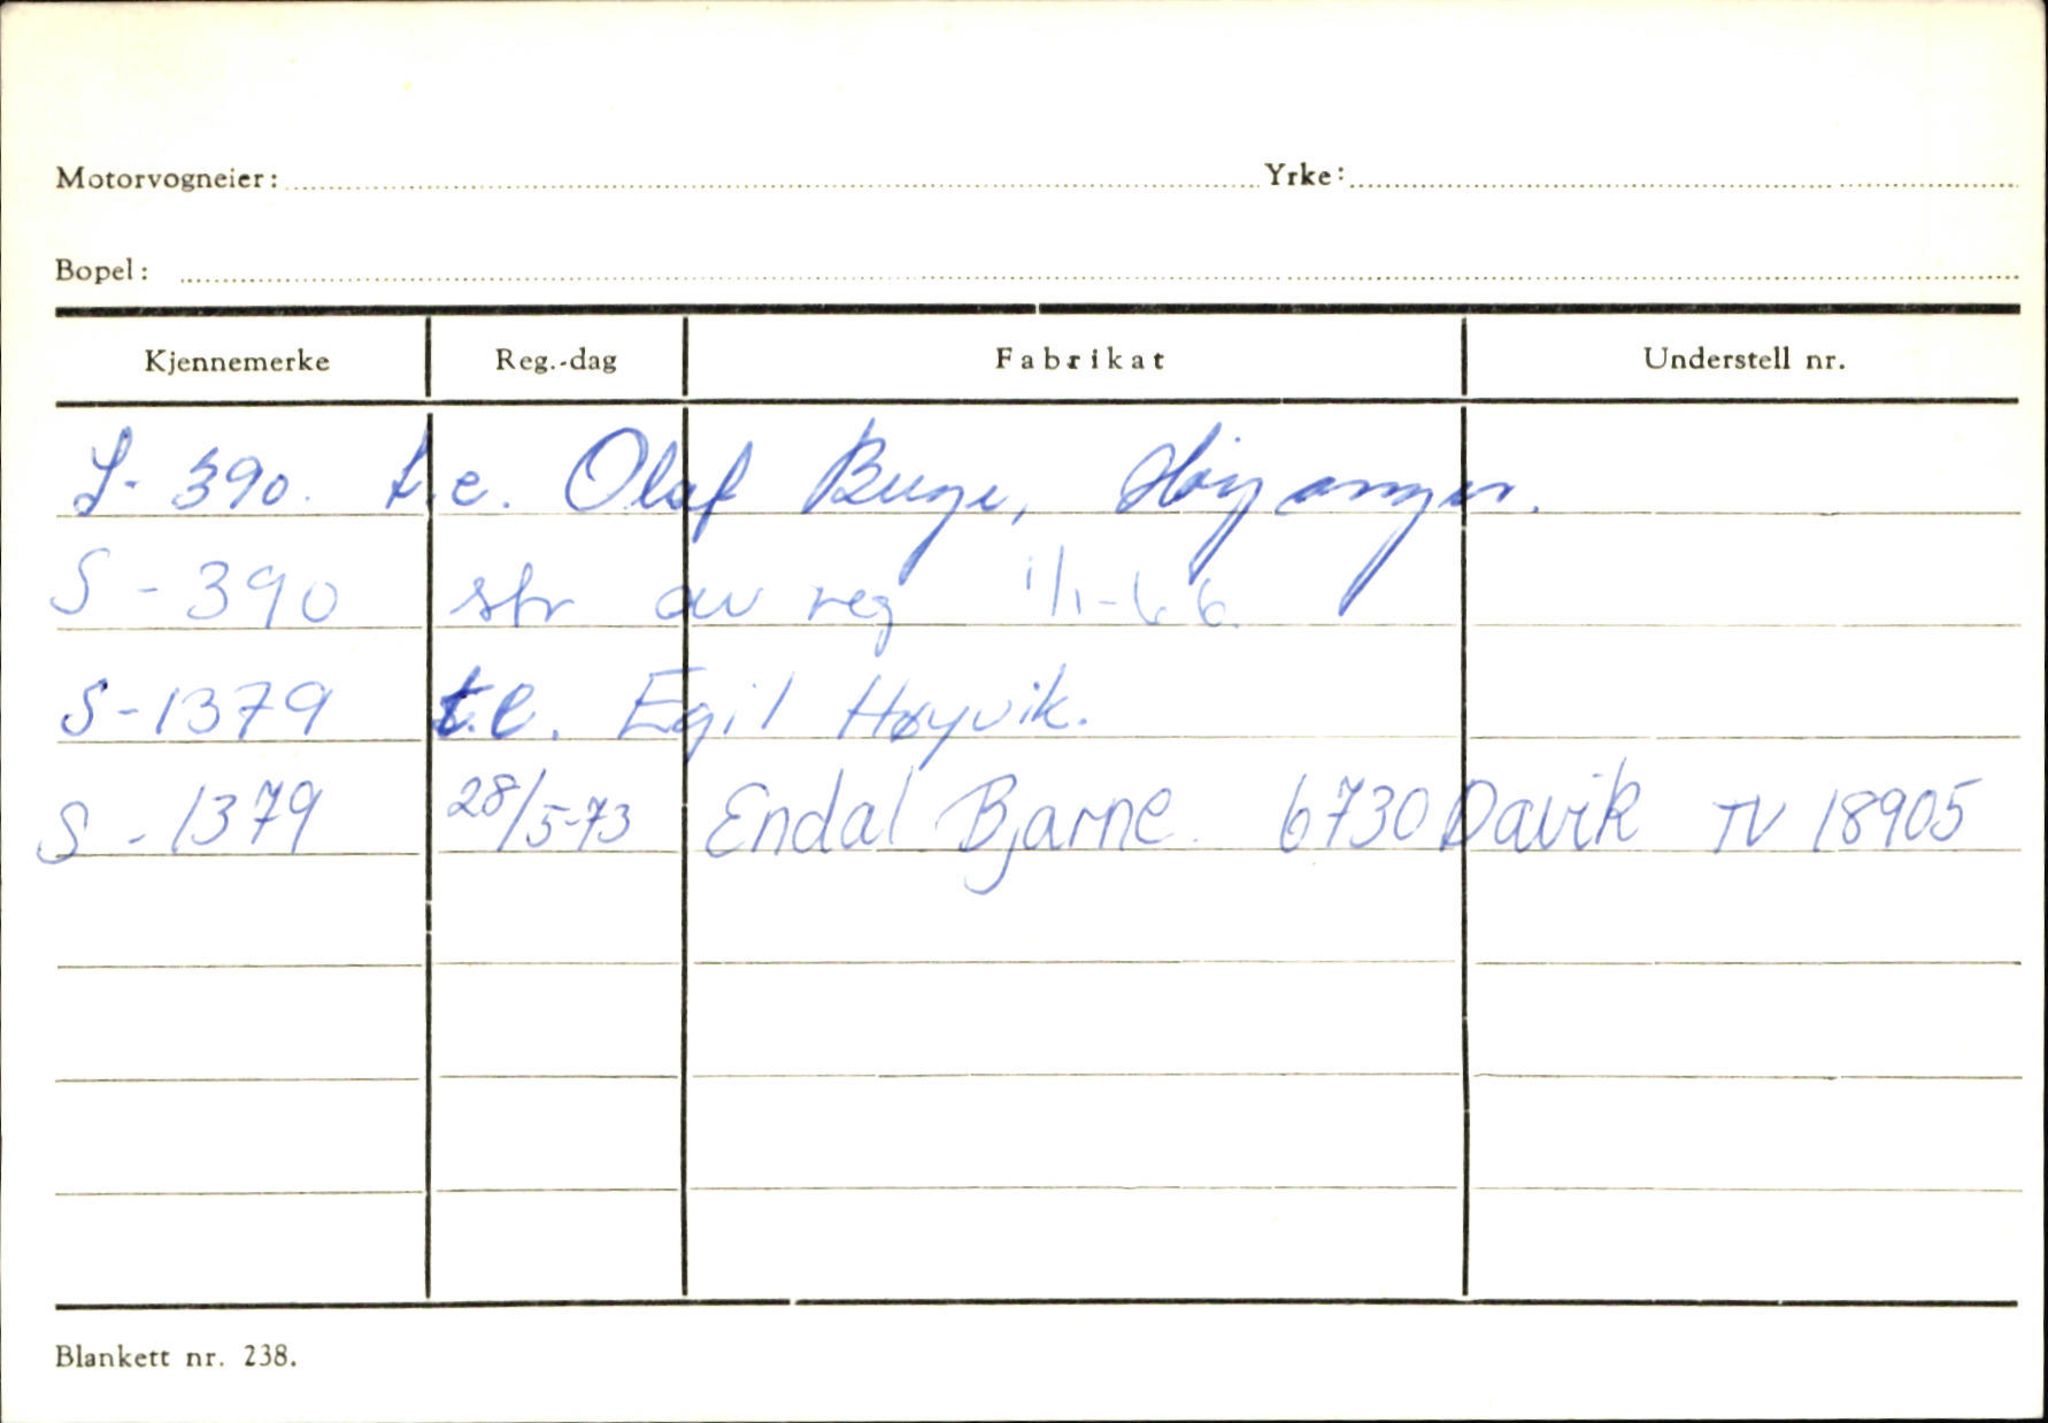 Motorvogneier: Yrke:
Bopel:
Kjennemerke Reg.-dag Fabrikat Understell nr.
S-390. t.e. Olaf Høyanger.
S-390 str av reg 1/1-66
S-1379 t.e. Egil Høyvik.
S-1379 28/5-73 Endal Bjarne. 6730 Davik TV 18905
Blankett nr. 238.